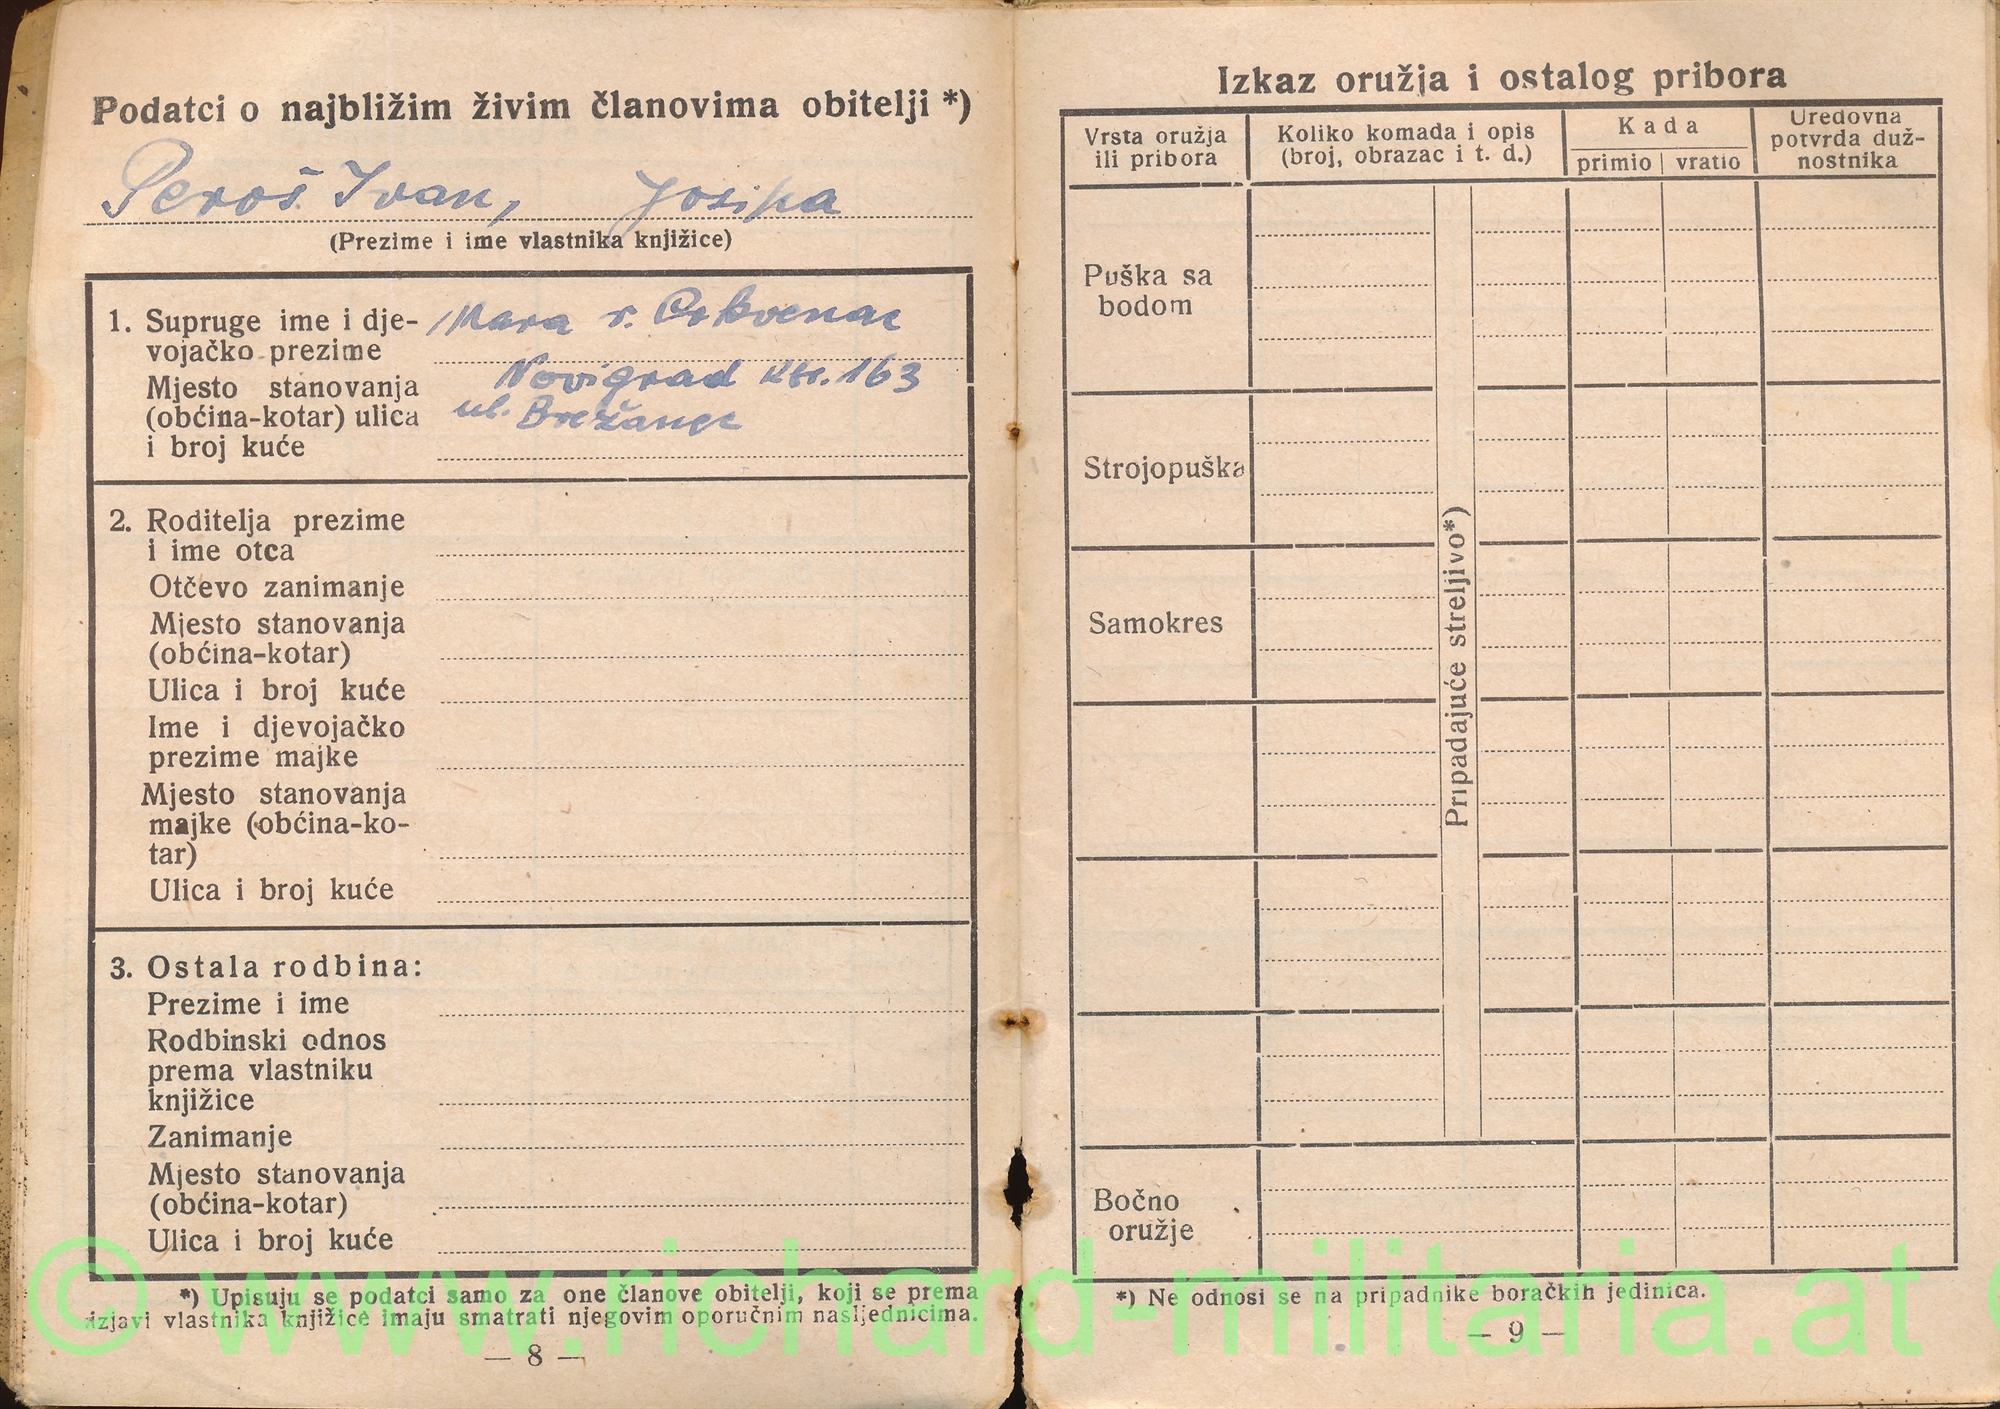 Podatci o najbližim živim članovima obitelji *)
Peroš Ivan, Josipa
(Prezime i ime vlastnika knjižice)
1. Supruge ime i dje-
vojačko prezime
Mara r. Crkvenac
Mjesto stanovanja
(občina-kotar) ulica
i broj kuće
Novigrad kbr. 163
ul. Brežanec
2. Roditelja prezime
i ime otca
Otčevo zanimanje
Mjesto stanovanja
(občina-kotar)
Ulica i broj kuće
Ime i djevojačko
prezime majke
Mjesto stanovanja
majke (občina-ko-
tar)
Ulica i broj kuće
3. Ostala rodbina:
Prezime i ime
Rodbinski odnos
prema vlastniku
knjižice
Zanimanje
Mjesto stanovanja
(občina-kotar)
Ulica i broj kuće
*) Upisuju se podatci samo za one članove obitelji, koji se prema
izjavi vlastnika knjižice imaju smatrati njegovim oporučnim nasljednicima.
— 8 —
Izkaz oružja i ostalog pribora
Vrsta oružja
ili pribora
Koliko komada i opis
(broj, obrazac i t. d.)
Kada
primio | vratio
Uredovna
potvrda duž-
nostnika
Puška sa
bodom
Strojopuška
Samokres
Pripadajuće streljivo*)
Bočno
oružje
*) Ne odnosi se na pripadnike boračkih jedinica.
— 9 —
© www.richard-militaria.at ©